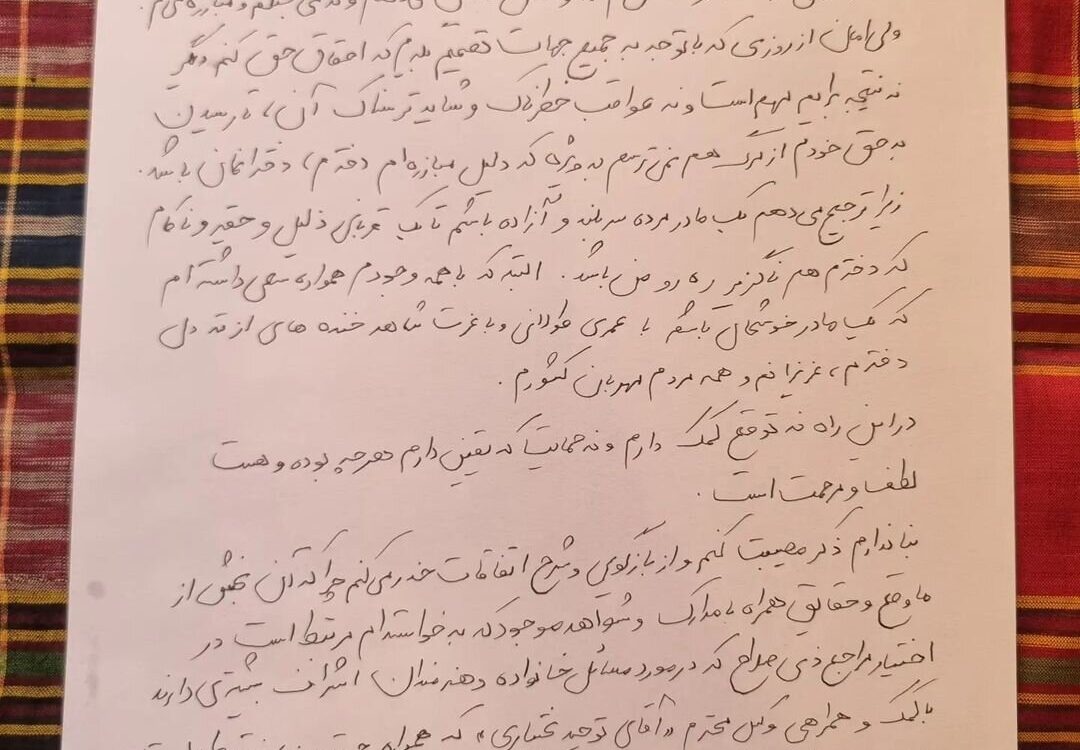 ولی امان از روزی که با توجه به جمیع جهات تصمیم بگیرم که احقاق حق کنم دیگر
نه نتیجه برایم مهم است و نه عواقب خطرناک و شاید ترسناک آن، تا رسیدن
به حق خودم از مرگ هم نمی‌ترسم به ویژه که دلیل مبارزه‌ام دخترم، دختر باشد.
زیرا ترجیح می‌دهم یک مادر مرده سربلند و آزاده باشم تا یک قربانی ذلیل و حقیر و ناکام
که دخترم هم ناگزیر ره رو من باشد. البته که با همه وجودم همواره سعی داشته ام
که یک مادر خوشحال باشم با عمری طولانی و با عزت شاهد خنده های از ته دل
دخترم، عزیزانم و همه مردم مهربان کشورم.
در این راه نه توقع کمک دارم و نه حمایت که یقین دارم هر چه بوده و هست
لطف و مرحمت است.
بنا ندارم ذکر مصیبت کنم و از بازگویی و شرح اتفاقات حذر می‌کنم چرا که آن بخش از
ماوقع و حقایق همراه با مدارک و شواهد موجود که به خواسته‌ام مرتبط است در
اختیار مراجع ذی صلاح که در مورد مسائل خانواده و هنرمندان اشراف بیشتری دارند
با کمک و همراهی وکیل محترم «آقای توحید بختیاری» که همواره